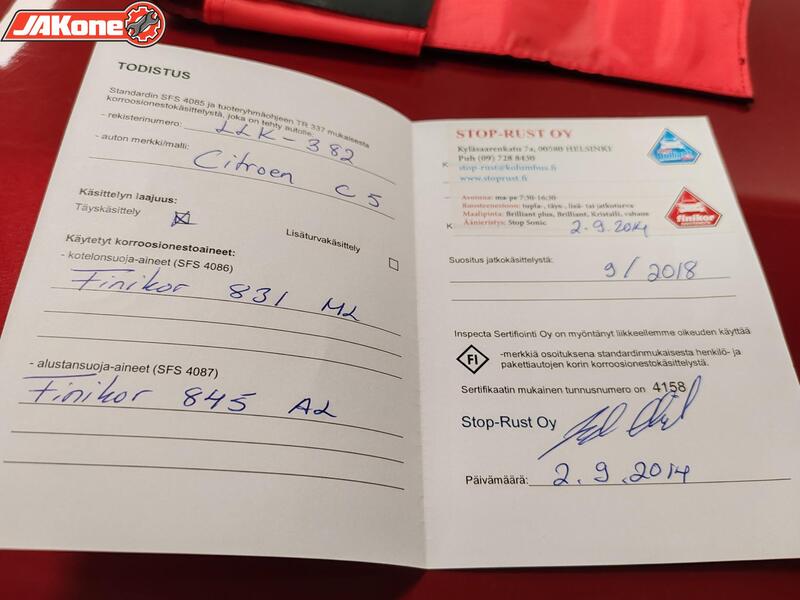 JAKone
TODISTUS
Standardin SFS 4085 ja tuoteryhmäohjeen TR 337 mukaisesta
korroosionestokäsittelystä, joka on tehty autolle:
- rekisterinumero: LLK-382
- auton merkki/malli: Citroen C5
Käsittelyn laajuus:
Täyskäsittely
Lisäturvakäsittely
Käytetyt korroosionestoaineet:
- kotelonsuoja-aineet (SFS 4086)
Finikor 831 ML
- alustansuoja-aineet (SFS 4087)
Finikor 845 AL
STOP-RUST OY
Kyläsaarenkatu 7a, 00580 HELSINKI
Puh (09) 728 8430
stop-rust@kolumbus.fi
www.stoprust.fi
Avoinna: ma-pe 7:30-16:30
Ruosteenestoon: tupla-, täys-, lisä- tai jatkoturva
Maalipinta: Brilliant plus, Brilliant, Kristalli, vahaus
Äänieristys: Stop Sonic
finikor
2.9.2014
Suositus jatkokäsittelystä: 9/2018
Inspecta Sertifiointi Oy on myöntänyt liikkeellemme oikeuden käyttää
FI -merkkiä osoituksena standardinmukaisesta henkilö- ja
pakettiautojen korin korroosionestokäsittelystä.
Sertifikaatin mukainen tunnusnumero on 4158
Stop-Rust Oy
Päivämäärä: 2.9.2014